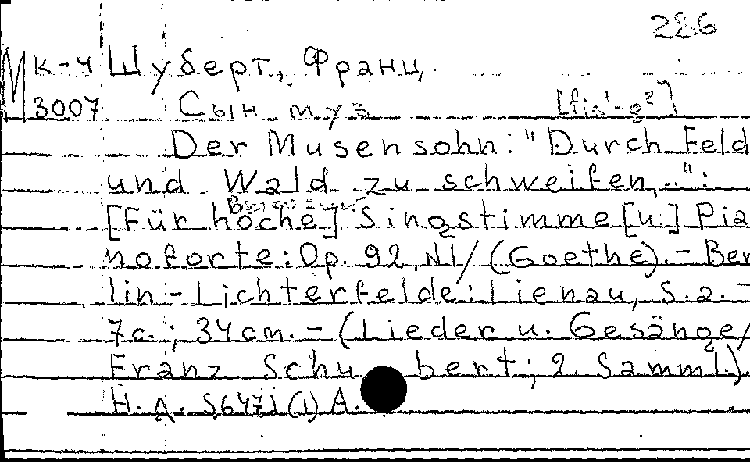 286
М к-4 Шуберт, Франц.
3007 Сын муз [fis¹-g²]
Der Musensohn: "Durch Feld
und Wald zu schweifen,..":
[Für hoche] Singstimme [u.] Pia
noforte: Op. 92, N1/(Goethe).- Ber
lin-Lichterfelde: Lienau, s.a. -
7c.; 34cm. - (Lieder u. Gesänge/
Franz Schubert; 2. Samml.)
Н.д. S647i(1)A.